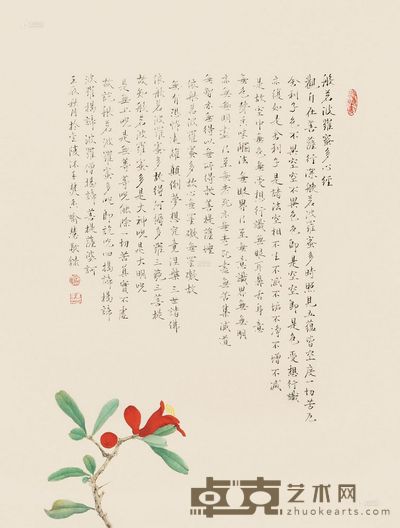 般若波羅蜜多心經
觀自在菩薩行深般若波羅蜜多時照見五蘊皆空度一切苦厄
舍利子色不異空空不異色色即是空空即是色受想行識
亦復如是舍利子是諸法空相不生不滅不垢不淨不增不減
是故空中無色無受想行識無眼耳鼻舌身意
無色聲香味觸法無眼界乃至無意識界無無明
亦無無明盡乃至無老死亦無老死盡無苦集滅道
無智亦無得以無所得故菩提薩埵
依般若波羅蜜多故心無罣礙無罣礙故
無有恐怖遠離顛倒夢想究竟涅槃三世諸佛
依般若波羅蜜多故得阿耨多羅三藐三菩提
故知般若波羅蜜多是大神咒是大明咒
是無上咒是無等等咒能除一切苦真實不虛
故說般若波羅蜜多咒即說咒曰揭諦揭諦
波羅揭諦波羅僧揭諦菩提薩婆訶
卓克艺术网
www.zhuokearts.com